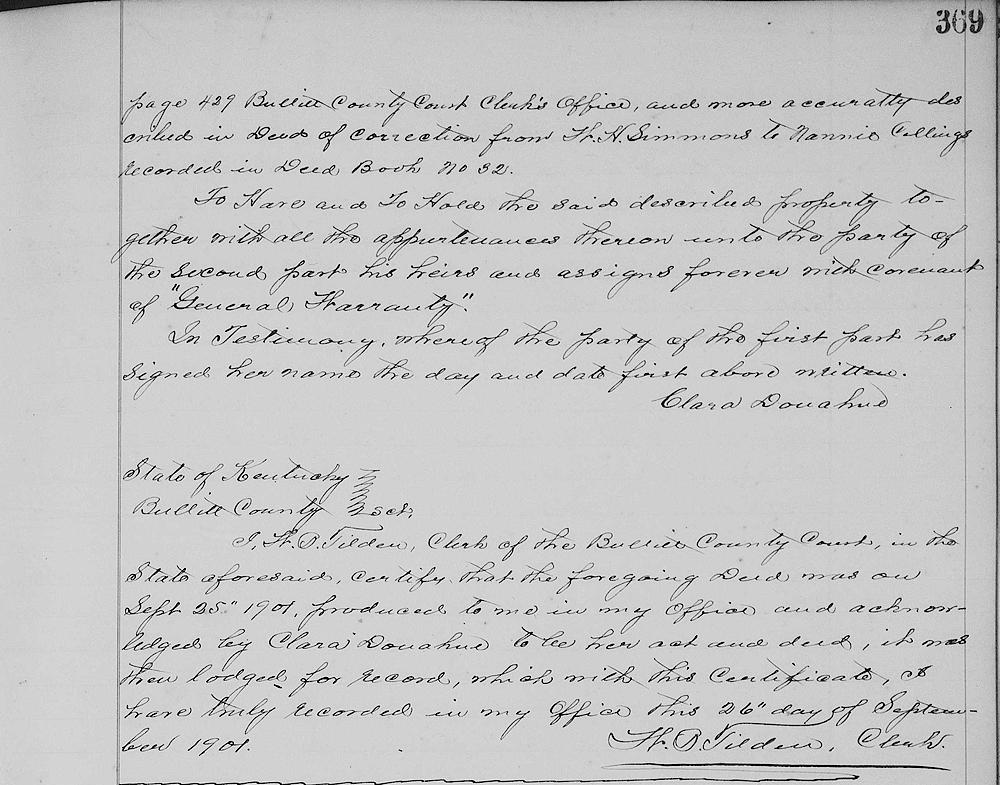 369
page 429 Bullitt County Court Clerk's Office, and more accuratly des
cribed in Deed of Correction from W. H. Simmons to Nannie Collings
recorded in Deed Book No 32.
To Have and To Hold the said described property to-
gether with all the appurtenances thereon unto the party of
the second part his heirs and assigns forever with covenant
of "General Warranty".
In Testimony, whereof the party of the first part has
signed her name the day and date first above written.
Clara Donahue
State of Kentucky
Bullitt County sct,
I, W. D. Tilden, Clerk of the Bullitt County Court, in the
State aforesaid, certify, that the foregoing Deed was on
Sept 25" 1901, produced to me in my Office and acknow-
ledged by Clara Donahue to be her act and deed, it was
then lodged for record, which with this Certificate, I
have truly recorded in my Office this 26" day of Septem-
ber 1901.
W. D. Tilden, Clerk.